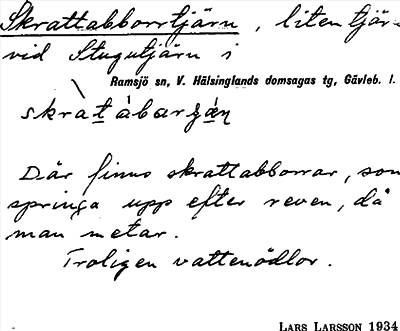 Skrattabborrtjärn, liten tjär-
vid Stugutjärn i
Ramsjö sn, V. Hälsinglands domsagas tg, Gävleb. l.
skràtàbarʒæ̀n
Där finns skrattabborrar, som
springa upp efter reven, då
man metar.
Troligen vattenödlor.
LARS LARSSON 1934